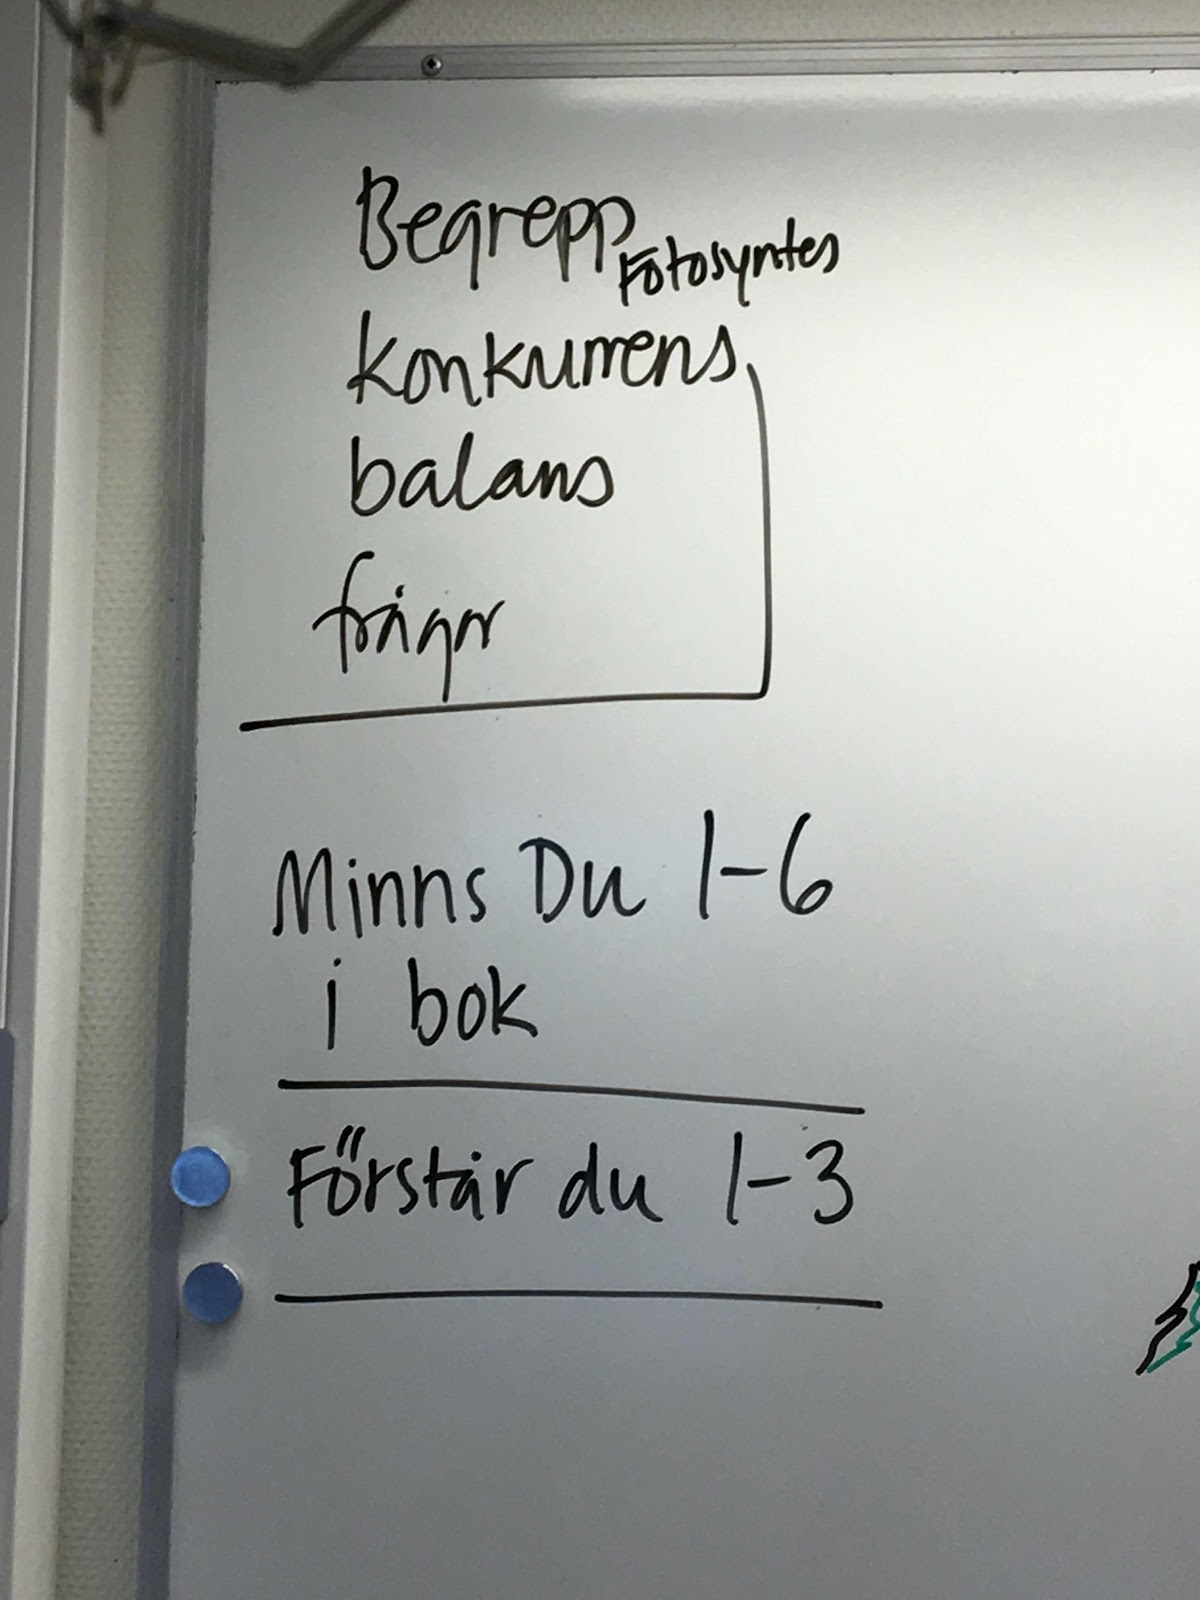 Begrepp
Fotosyntes
konkurrens
balans
frågor
Minns Du 1-6
i bok
Förstår du 1-3